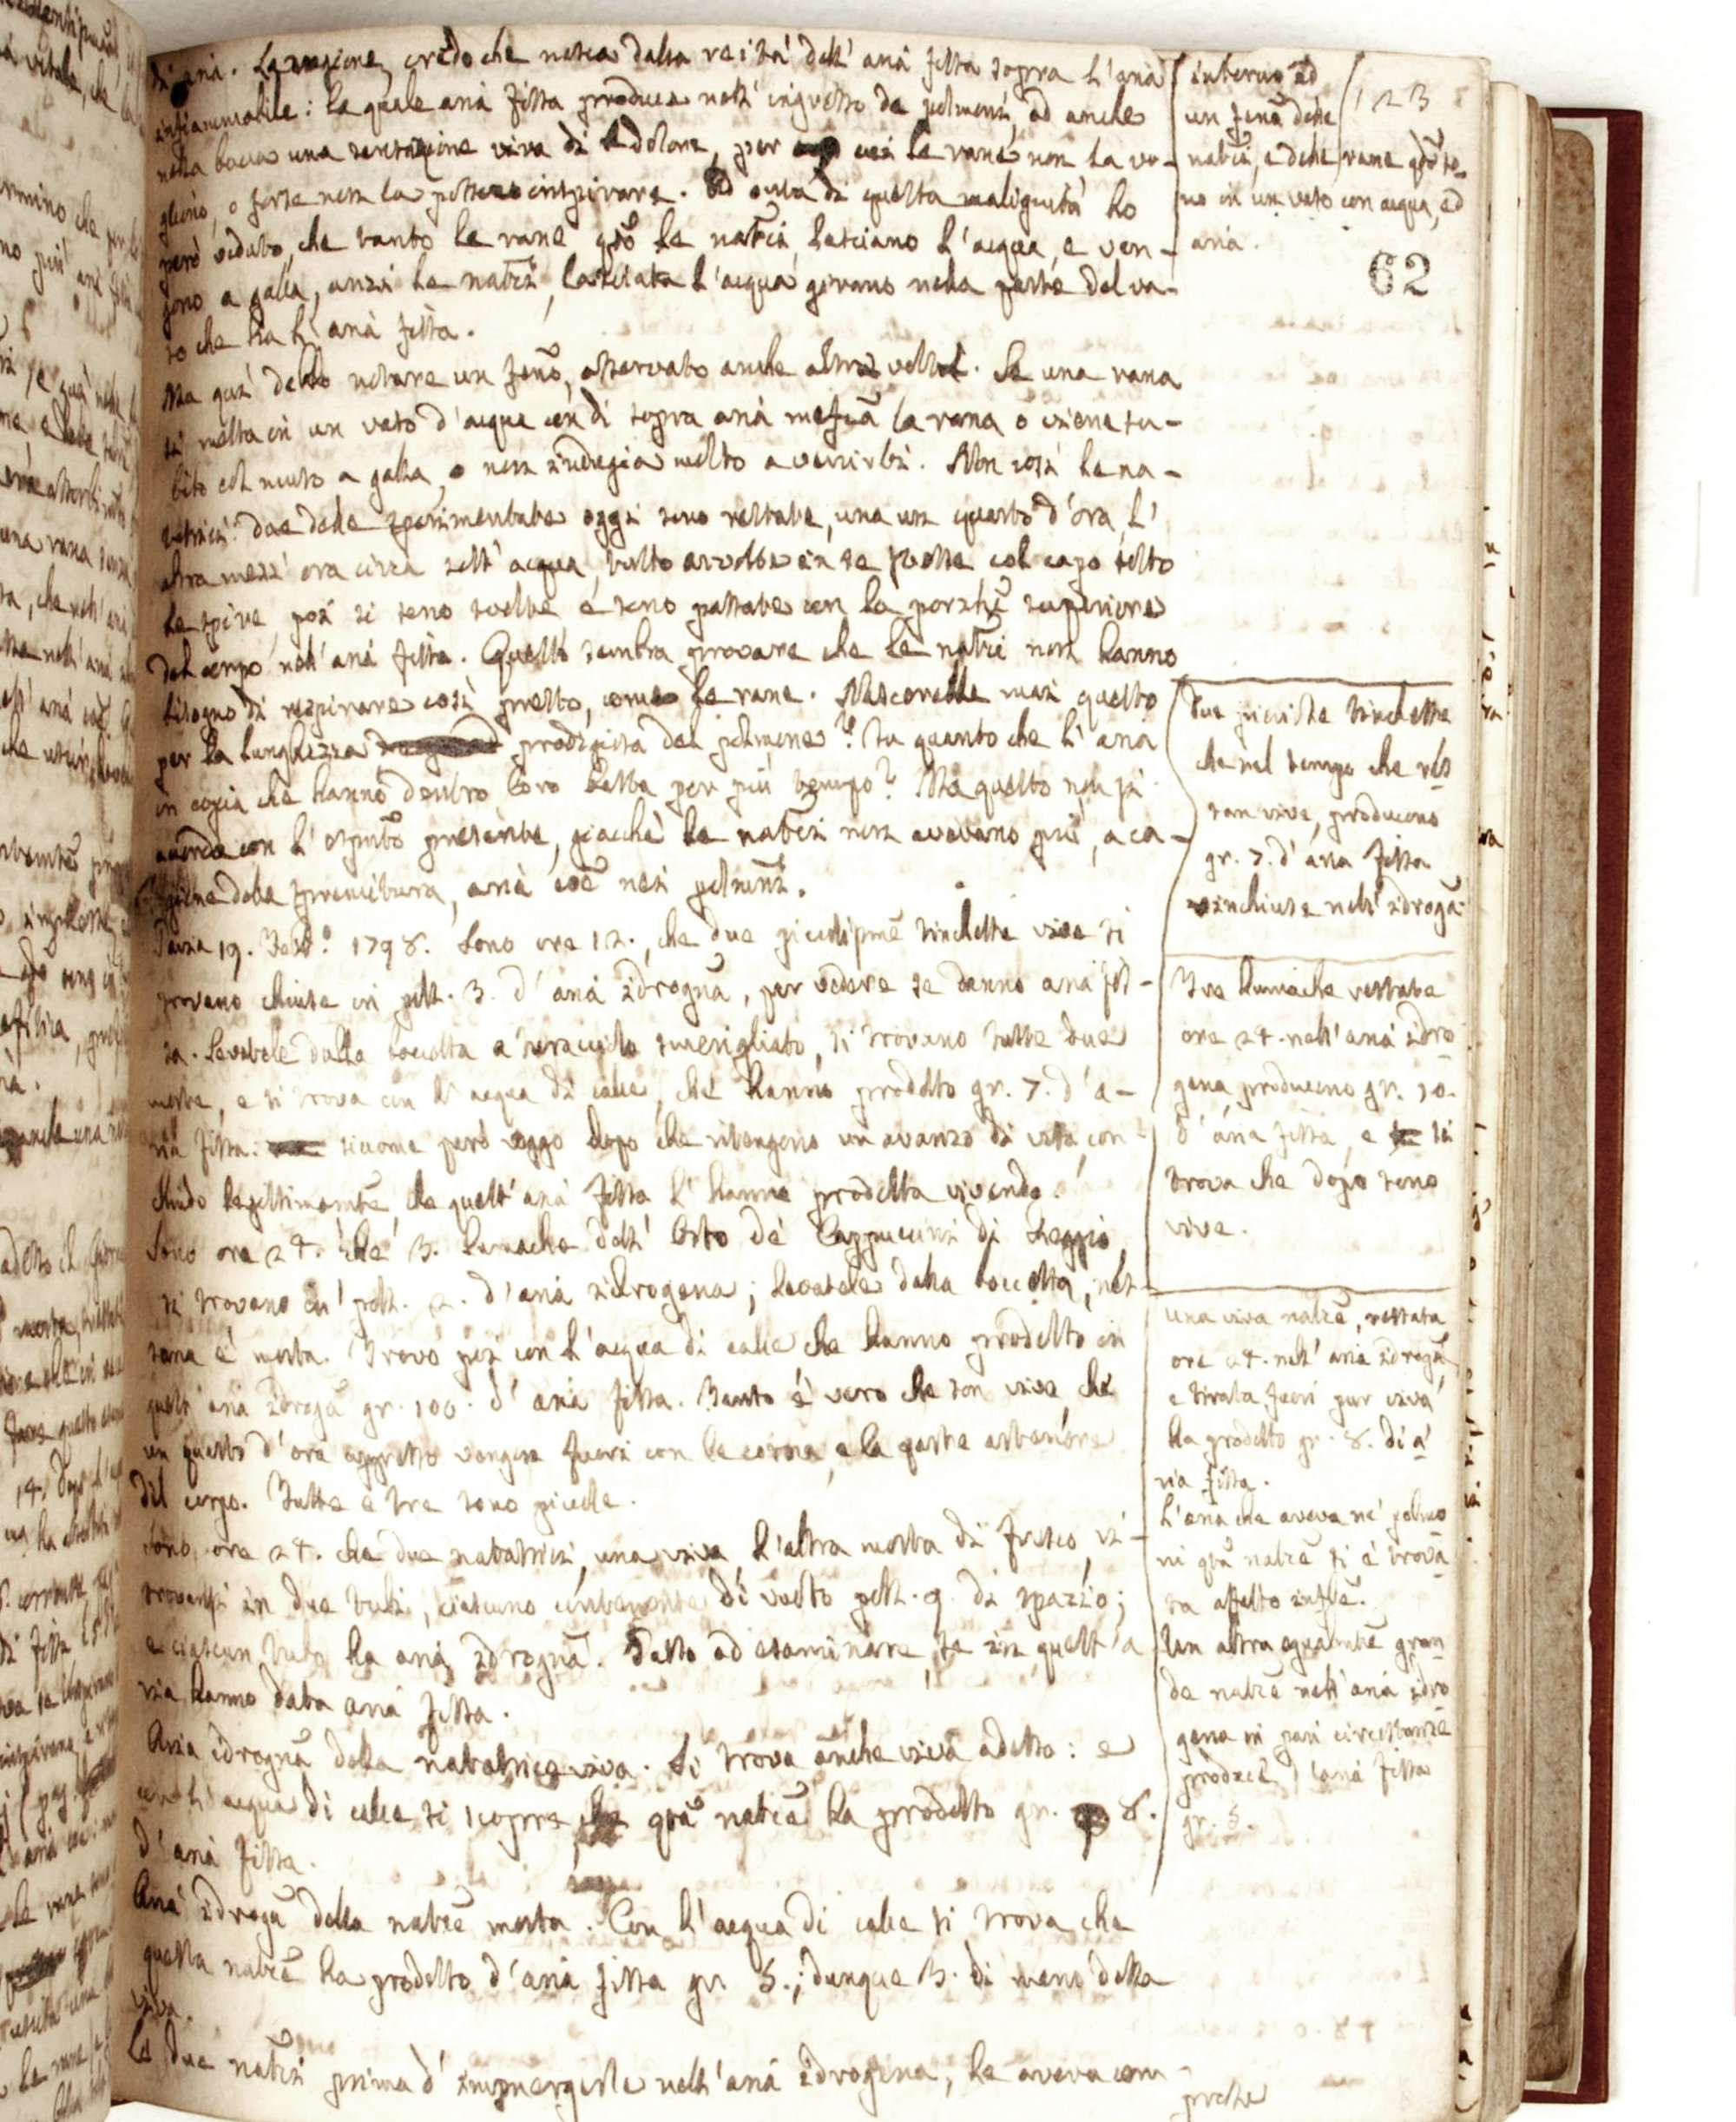 di aria. La ragione, credo che nasca dalla reità dell'aria fissa sopra l'aria
infiammabile: la quale aria fissa produce nell'ingresso de polmoni, ed anche
nella bocca una sensazione viva di dolore, per cui le rane non la vo-
gliono, o forse non la possono inspirare. Ad onta di questa malignità ho
però veduto, che tanto le rane qto le natrici lasciano l'acqua, e ven-
gono a galla, anzi le natrici, lasciata l'acqua girano nella parte del va-
so che ha l'aria fissa.
Ma qui debbo notare un feno, osservato anche altre volte. Se una rana
si metta in un vaso d'acqua con di sopra aria mefica la rana o viene su-
bito col muso a galla, o non indugia molto a venirvi. Non così le na-
tatrici: due delle sperimentate oggi sono restate, una un quarto d'ora, l'
altra mezz'ora circa sott'acqua, tutto avvolte in se stesse col capo sotto
le spire, poi si sono svolte e sono passate con la porzne superiore
del corpo nell'aria fissa. Questo sembra provare che le natrici non hanno
bisogno di respirare così presto, come le rane. Nascerebbe mai questo
per la lunghezza prodigiosa del polmone? In quanto che l'aria
in copia che hanno dentro loro basta per più tempo? Ma questo non si
accorda con l'esperto presente, giacchè le natrici non avevano più, a ca-
gione della spremitura, aria così nei polmoni.
Pavia 19. 1798. Sono ore 12., che due piccolissime vive si
trovano chiuse in poll. 3. d'aria idrogna, per vedere se danno aria fis-
sa. Levatele dalla boccetta a turacciolo smerigliato, si trovano tutte due
morte, e si trova con l'acqua di calce, che hanno prodotto gr. 7. d'a-
ria fissa: siccome però veggo dopo che ritengono un avanzo di vita, con-
chiudo legittimamte che quest'aria fissa l'hanno prodotta vivendo.
Sono ore 24. che 3. lumache dell'Orto de' Cappuccini di Reggio,
si trovano in poll. 2. d'aria idrogena; levatele dalla boccetta, nes-
suna è morta. Trovo poi con l'acqua di calce che hanno prodotto in
quest'aria idroga gr. 100. d'aria fissa. Tanto è vero che son vive, che
un quarto d'ora appresso vengon fuori con le corna, e la parte anteriore
del corpo. Tutte e tre sono piccole.
Sono ore 24. che due natatrici, una viva l'altra morta di fresco, ri-
trovansi in due tubi, ciascuno contenente di vuoto poll. 9. di spazio;
e ciascun tubo ha aria idrogna. Passo ad esaminare, se in quest'a
ria hanno data aria fissa.
Aria idrogna della natatrice viva. Si trova anche viva adesso: e
con l'acqua di calce si scopre che qta natrice ha prodotto gr. 8.
d'aria fissa.
Aria idroga della natrice morta. Con l'acqua di calce si trova che
questa natrice ha prodotto d'aria fissa gr. 5.; dunque 3. di meno della
viva.
Le due natrici prima d'immergerle nell'aria idrogena, le aveva com-
presse
interno ad
un feno delle
natrici, e delle rane qdo so-
no in un vaso con acqua, ed
aria.
123
62
Due picciole
che nel tempo che res
tan vive, producono
gr. 7. d'aria fissa
rinchiuse nell'idroga
Tre lumache restate
ore 24. nell'aria idro
gena producono gr. 10.
d'aria fissa, e si
trova che dopo sono
vive.
Una viva natrice, restata
ore 24. nell'aria idroga,
e tirata fuori pur viva
ha prodotto gr. 8. di a
ria fissa.
L'aria che aveva ne' polmo
ni qta natrice si è trova
ta affatto
Un altra egualmte gran
de natrice nell'aria idro
gena in pari circostanze
produce d'aria fissa
gr. 5.